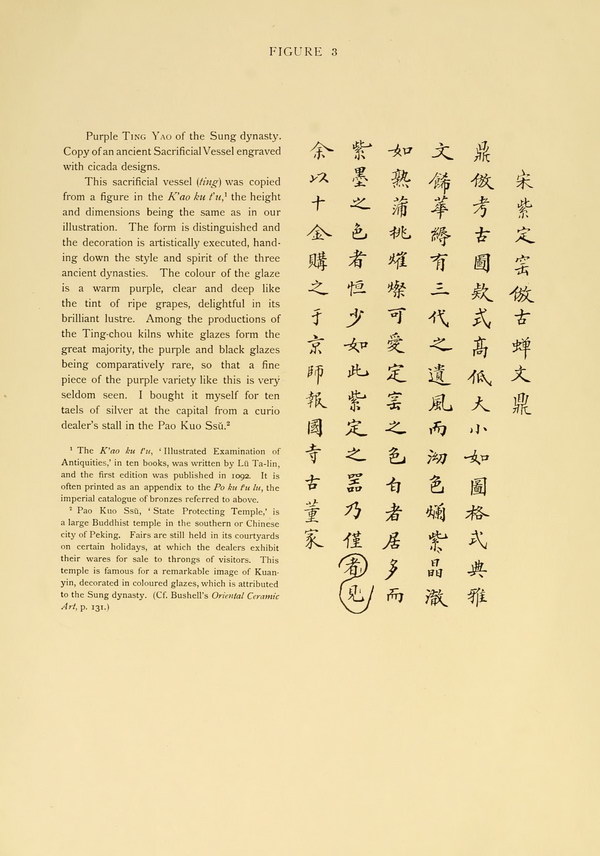 FIGURE 3
Purple TING YAO of the Sung dynasty.
Copy of an ancient Sacrificial Vessel engraved
with cicada designs.
This sacrificial vessel (ting) was copied
from a figure in the K'ao ku t'u,¹ the height
and dimensions being the same as in our
illustration. The form is distinguished and
the decoration is artistically executed, hand-
ing down the style and spirit of the three
ancient dynasties. The colour of the glaze
is a warm purple, clear and deep like
the tint of ripe grapes, delightful in its
brilliant lustre. Among the productions of
the Ting-chou kilns white glazes form the
great majority, the purple and black glazes
being comparatively rare, so that a fine
piece of the purple variety like this is very
seldom seen. I bought it myself for ten
taels of silver at the capital from a curio
dealer's stall in the Pao Kuo Ssŭ.²
¹ The K'ao ku t'u, 'Illustrated Examination of
Antiquities,' in ten books, was written by Lü Ta-lin,
and the first edition was published in 1092. It is
often printed as an appendix to the Po ku t'u lu, the
imperial catalogue of bronzes referred to above.
² Pao Kuo Ssŭ, 'State Protecting Temple,' is
a large Buddhist temple in the southern or Chinese
city of Peking. Fairs are still held in its courtyards
on certain holidays, at which the dealers exhibit
their wares for sale to throngs of visitors. This
temple is famous for a remarkable image of Kuan-
yin, decorated in coloured glazes, which is attributed
to the Sung dynasty. (Cf. Bushell's Oriental Ceramic
Art, p. 131.)
宋紫定窑倣古蟬文鼎
鼎倣考古圖欵式高低大小如圖格式典雅
文餙華縟有三代之遺風而泑色爛紫晶澈
如熟蒲桃燿燦可愛定窑之色白者居多而
紫墨之色者恒少如此紫定之器乃僅者見
余以十金購之于京師報國寺古董家